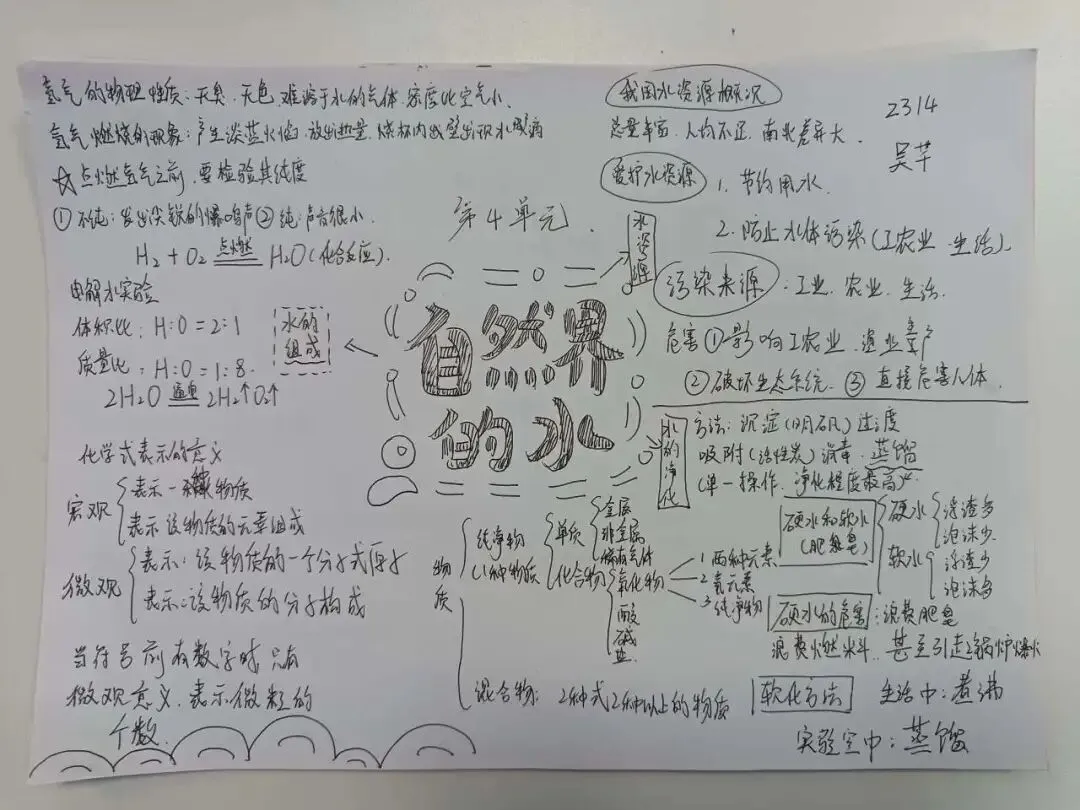 氢气的物理性质:无臭、无色、难溶于水的气体、密度比空气小、
氢气燃烧的现象:产生淡蓝火焰、放出热量、烧杯内
☆点燃氢气之前,要检验其纯度
①不纯:发出尖锐的爆鸣声②纯:声音很小.
H₂+O₂ 点燃 H₂O(化合反应).
电解水实验
体积比:H:O=2:1
质量比:H:O=1:8.
2H₂O 通电 2H₂↑O₂↑
水的
组成
化学式表示的意义
宏观
表示一种物质
表示该物质的元素组成
微观
表示:该物质的一个分子或原子
表示:该物质的分子构成
当符号前有数字时只有
微观意义,表示微粒的
个数.
第4单元.
自然界
的水
水资源
水的净化
我国水资源概况
总量丰富、人均不足、南北差异大.
2314
吴芊
爱护水资源
1.节约用水.
2.防止水体污染(工农业、生活).
污染来源:工业、农业、生活.
危害①影响工农业、渔业生产
②破坏生态系统.③直接危害人体.
方法:沉淀(明矾)过渡
吸附(活性炭)消毒、蒸馏
(单一操作、净化程度最高)
物质
纯净物
(1种物质
单质
金属
非金属
稀有气体
化合物
氧化物
1.两种元素
2.氧元素
3.纯净物
酸
碱
盐
混合物:2种或2种以上的物质
硬水和软水
(肥皂)
硬水
浮渣多
泡沫少
软水
浮渣少
泡沫多
硬水的危害:浪费肥皂
浪费燃料、甚至引起锅炉爆炸
软化方法
生活中:煮沸
实验室中:蒸馏